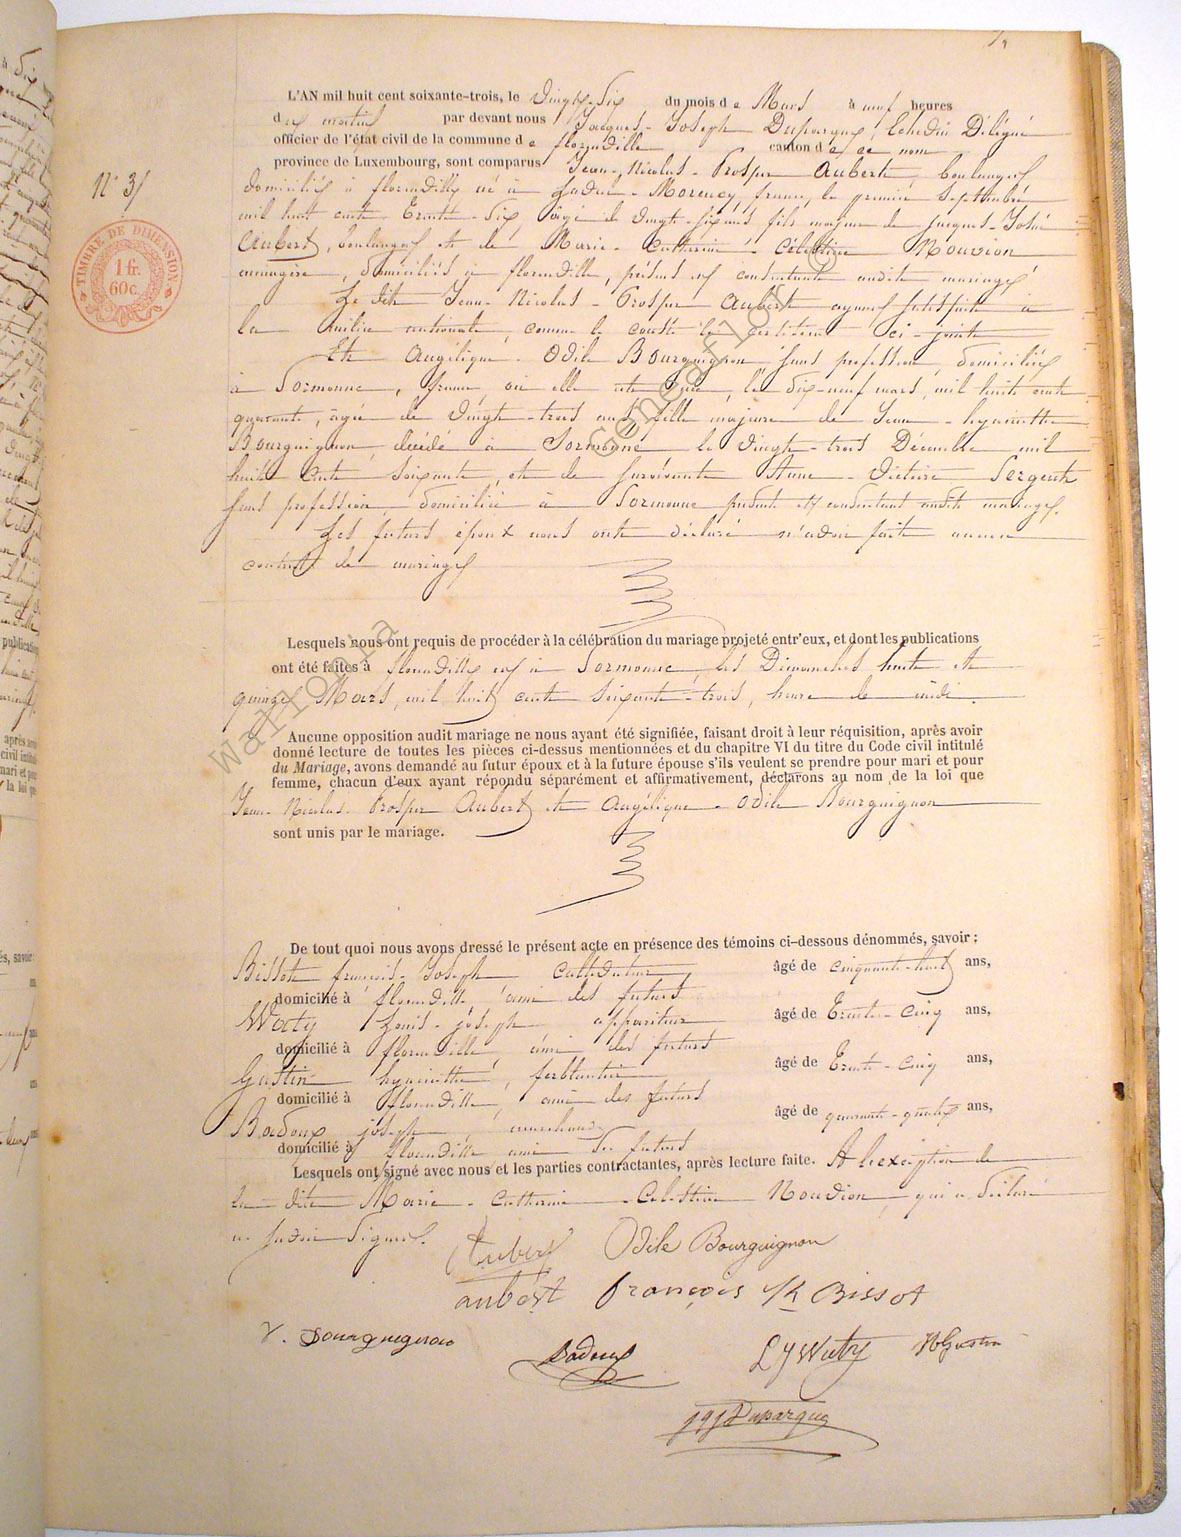 L'AN mil huit cent soixante-trois, le Vingt-Six du mois de Mars à neuf heures
du matin par devant nous Jacques-Joseph Duparque, Echevin Délégué
officier de l'état civil de la commune de florenville canton de ce nom
province de Luxembourg, sont comparus Jean-Nicolas-Prosper Aubert, boulanger
N° 3
TIMBRE DE DIMENSION
1 fr.
60c.
domicilié à florenville né à Morency, france, le premier Septembre
mil huit cent Trente-Six, âgé de vingt-six ans, fils majeur de Jacques-Josué
Aubert, boulanger et de Marie-Catherine-Célestine Nouvion
ménagère, domiciliés à florenville, présens et consentants audit mariage,
Le dit Jean-Nicolas-Prosper Aubert ayant satisfait à
la milice nationale, comme le conste le certificat ci-joint
Et Angélique-Odile Bourguignon sans profession, domiciliée
à Sormonne, france, où elle est née, le dix-neuf mars, mil huit cent
quarante, âgée de vingt-trois ans, fille majeure de Jean-hyacinthe
Bourguignon, décédé à Sormonne le Vingt-trois Décembre mil
huit cent soixante, et de survivante Anne-Victoire Sergent
sans profession, domiciliée à Sormonne présente et consentant audit mariage.
Les futurs époux nous ont déclaré n'avoir fait aucun
contrat de mariage
Lesquels nous ont requis de procéder à la célébration du mariage projeté entr'eux, et dont les publications
ont été faites à florenville et à Sormonne, les Dimanches huit et
quinze Mars, mil huit cent soixante-trois, heure de midi.
Aucune opposition audit mariage ne nous ayant été signifiée, faisant droit à leur réquisition, après avoir
donné lecture de toutes les pièces ci-dessus mentionnées et du chapitre VI du titre du Code civil intitulé
du Mariage, avons demandé au futur époux et à la future épouse s'ils veulent se prendre pour mari et pour
femme, chacun d'eux ayant répondu séparément et affirmativement, déclarons au nom de la loi que
Jean-Nicolas-Prosper Aubert et Angélique-Odile Bourguignon
sont unis par le mariage.
De tout quoi nous avons dressé le présent acte en présence des témoins ci-dessous dénommés, savoir :
Bissot françois-Joseph, cultivateur, âgé de cinquante-huit ans,
domicilié à florenville ami des futurs
Waty Louis-joseph, appariteur âgé de Trente-cinq ans,
domicilié à florenville, ami des futurs
Gustin hyacinthe, ferblantier âgé de Trente-cinq ans,
domicilié à florenville, ami des futurs
Badoux joseph, marchand âgé de quarante-quatre ans,
domicilié à florenville ami des futurs
Lesquels ont signé avec nous et les parties contractantes, après lecture faite. A l'exception de
la dite Marie-Catherine-Celestine Nouvion, qui a déclaré
ne savoir signer.
Aubert Odile Bourguignon
aubert françois Bissot
V. Bourguignon Badoux L J Waty H Gustin
Duparque
Wallonia Geneaflor ©